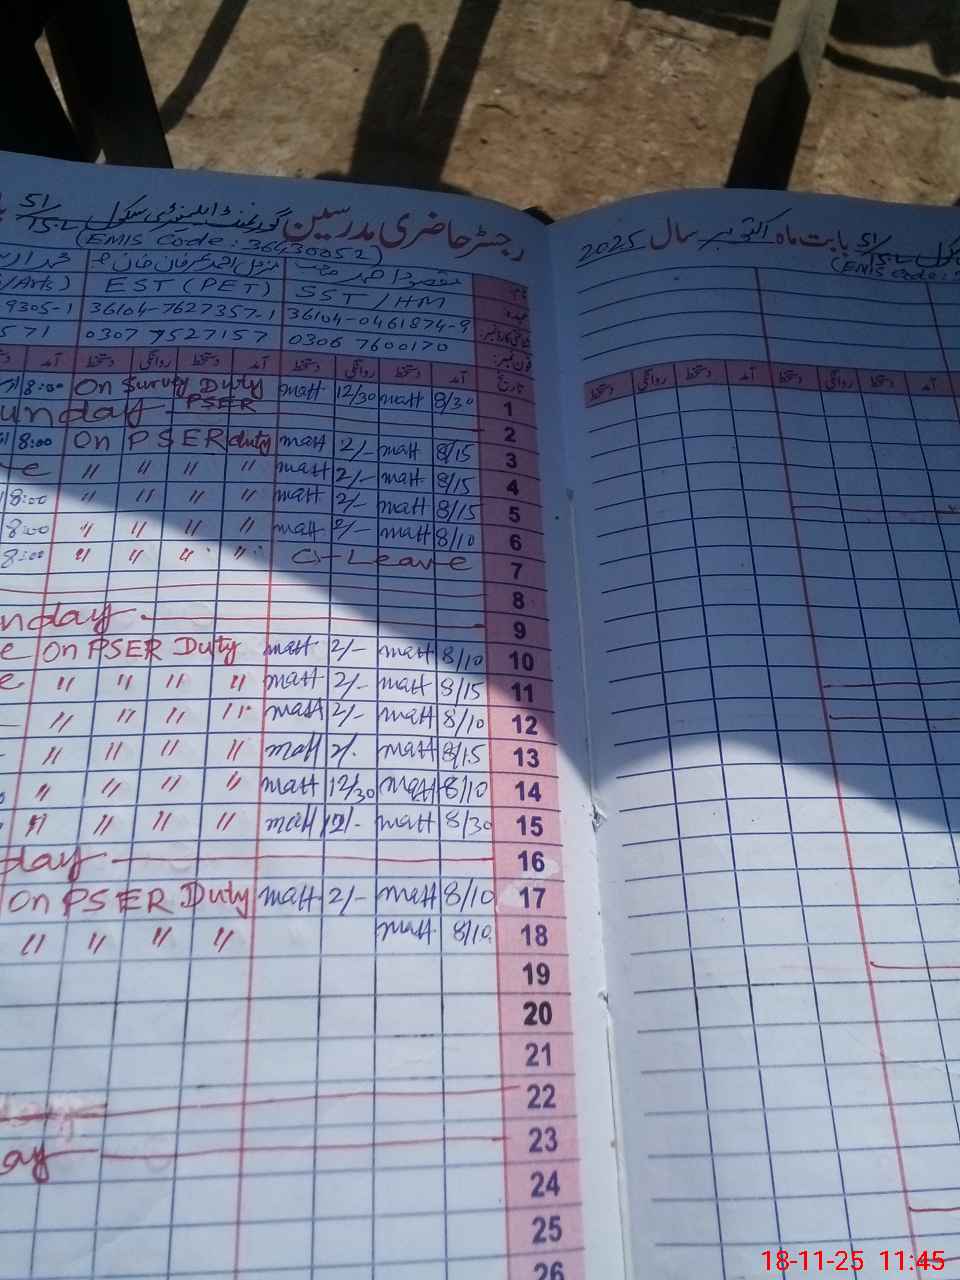 رجسٹر حاضری مدرسین گورنمنٹ ایلیمنٹری سکول 51/15-L
(EMIS Code : 36430052)
EST (PET) SST / HM
9305-1 36104-7627357-1 36104-0461874-9
571 0307 7527157 0306 7600170
آمد دستخط روانگی دستخط آمد دستخط روانگی دستخط آمد تاریخ
8:00 On Survey Duty PSER matt 12/30 matt 8/30 1
unday 2
8:00 On PSER duty matt 2/- matt 8/15 3
e " " " " matt 2/- matt 8/15 4
8:00 " " " " matt 2/- matt 8/15 5
8:00 " " " " matt 2/- matt 8/10 6
8:00 " " " " C-Leave 7
8
nday 9
e On PSER Duty matt 2/- matt 8/10 10
e " " " " matt 2/- matt 8/15 11
" " " " matt 2/- matt 8/10 12
" " " " matt 2/- matt 8/15 13
" " " " matt 12/30 matt 8/10 14
" " " " matt 12/- matt 8/30 15
day 16
On PSER Duty matt 2/- matt 8/10 17
" " " " matt 8/10 18
19
20
21
22
ay 23
24
25
26
51/15-L بابت ماہ اکتوبر سال 2025
(EMIS Code :
دستخط روانگی دستخط آمد دستخط روانگی دستخط آمد
18-11-25 11:45